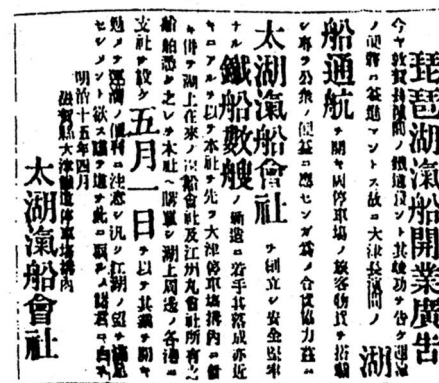 琵琶湖滊船開業廣告
今ヤ敦賀長濱間ノ鐵道成ント其竣功ヲ告ク運漕
ノ便將ニ益進マントス故ニ大津長濱間ノ 湖
船通航 ヲ開キ両停車塲ノ旅客物貨ヲ搭載
シ專ラ公衆ノ便益ニ應センガ爲メ合資協力茲ニ
太湖滊船會社 ヲ創立シ安全堅牢
ナル 鐵船數艘 ノ新造ニ着手其落成亦近
キニアルヲ以テ本社ヲ先ツ大津停車塲搆内ニ設
ケ併テ湖上在來ノ滊船會社及江州丸會社所有之
船舶悉ク之レヲ本社ヘ購買シ湖上周邊ノ各港ニ
支社ヲ設ケ 五月一日 ヲ以テ其業ヲ開キ
勉メテ運漕ノ便利ニ注意シ汎ク江湖ノ望ヲ滿足
セシメント欲ス 諸君ニ白ス
明治十五年四月
滋賀縣大津鐵道停車塲搆内
太湖滊船會社